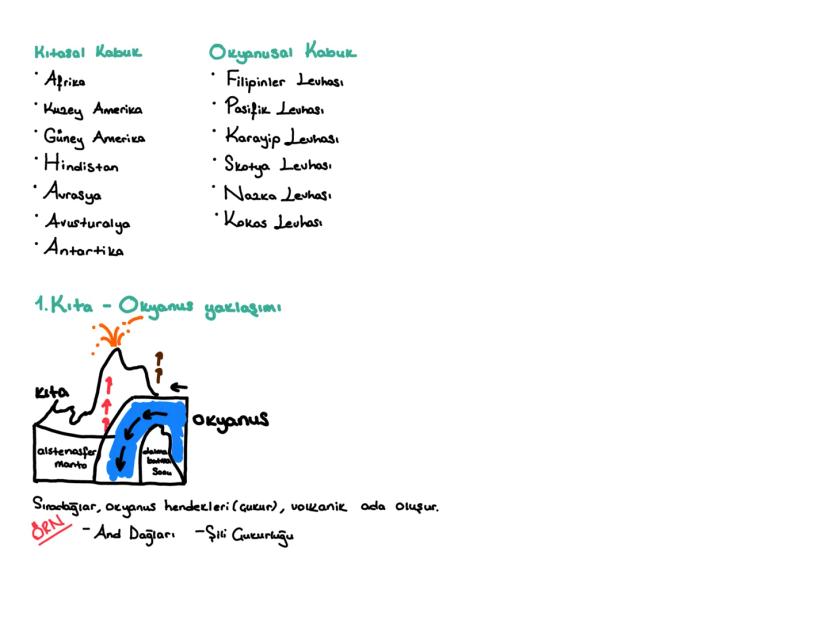 Kıtasal Kabuk
• Afrika
• Kuzey Amerika
• Güney Amerika
• Hindistan
• Avrasya
• Avusturalya
• Antartika
Okyanusal Kabuk
• Filipinler Levhası
• Pasifik Levhası
• Karayip Levhası
• Skotya Levhası
• Nazka Levhası
• Kokos Levhası
1. Kıta - Okyanus yaklaşımı
kıta
okyanus
alstenosfer
manto
dalma
batma
Sonu
Sıradağlar, okyanus hendekleri (çukur), volkanik ada oluşur.
ÖRN - And Dağları - Şili Çukurluğu